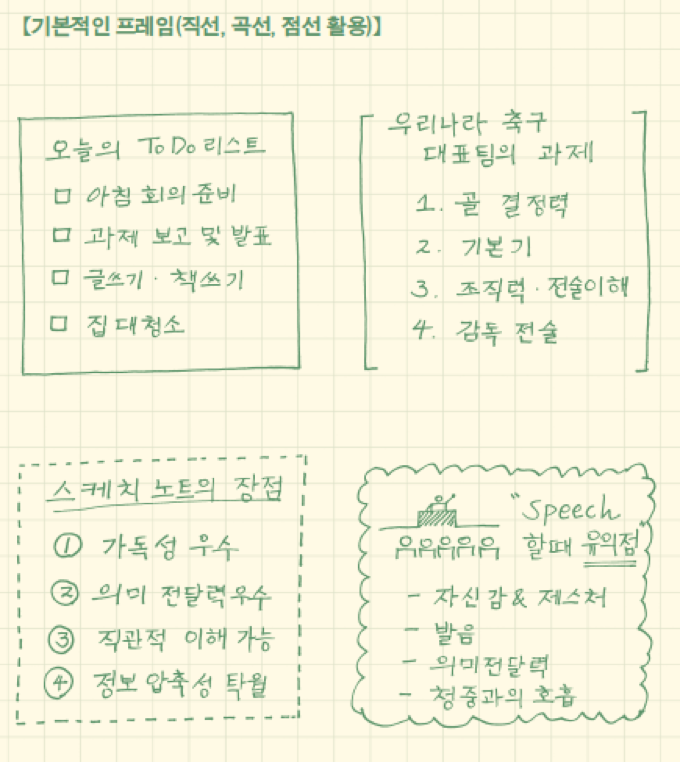 【기본적인 프레임(직선, 곡선, 점선 활용)】
오늘의 To Do 리스트
□ 아침 회의 준비
□ 과제 보고 및 발표
□ 글쓰기 · 책쓰기
□ 집 대청소
우리나라 축구
대표팀의 과제
1. 골 결정력
2. 기본기
3. 조직력 · 전술이해
4. 감독 전술
스케치 노트의 장점
① 가독성 우수
② 의미 전달력 우수
③ 직관적 이해 가능
④ 정보 압축성 탁월
"Speech
할때 유의점"
- 자신감 & 제스처
- 발음
- 의미전달력
- 청중과의 호흡